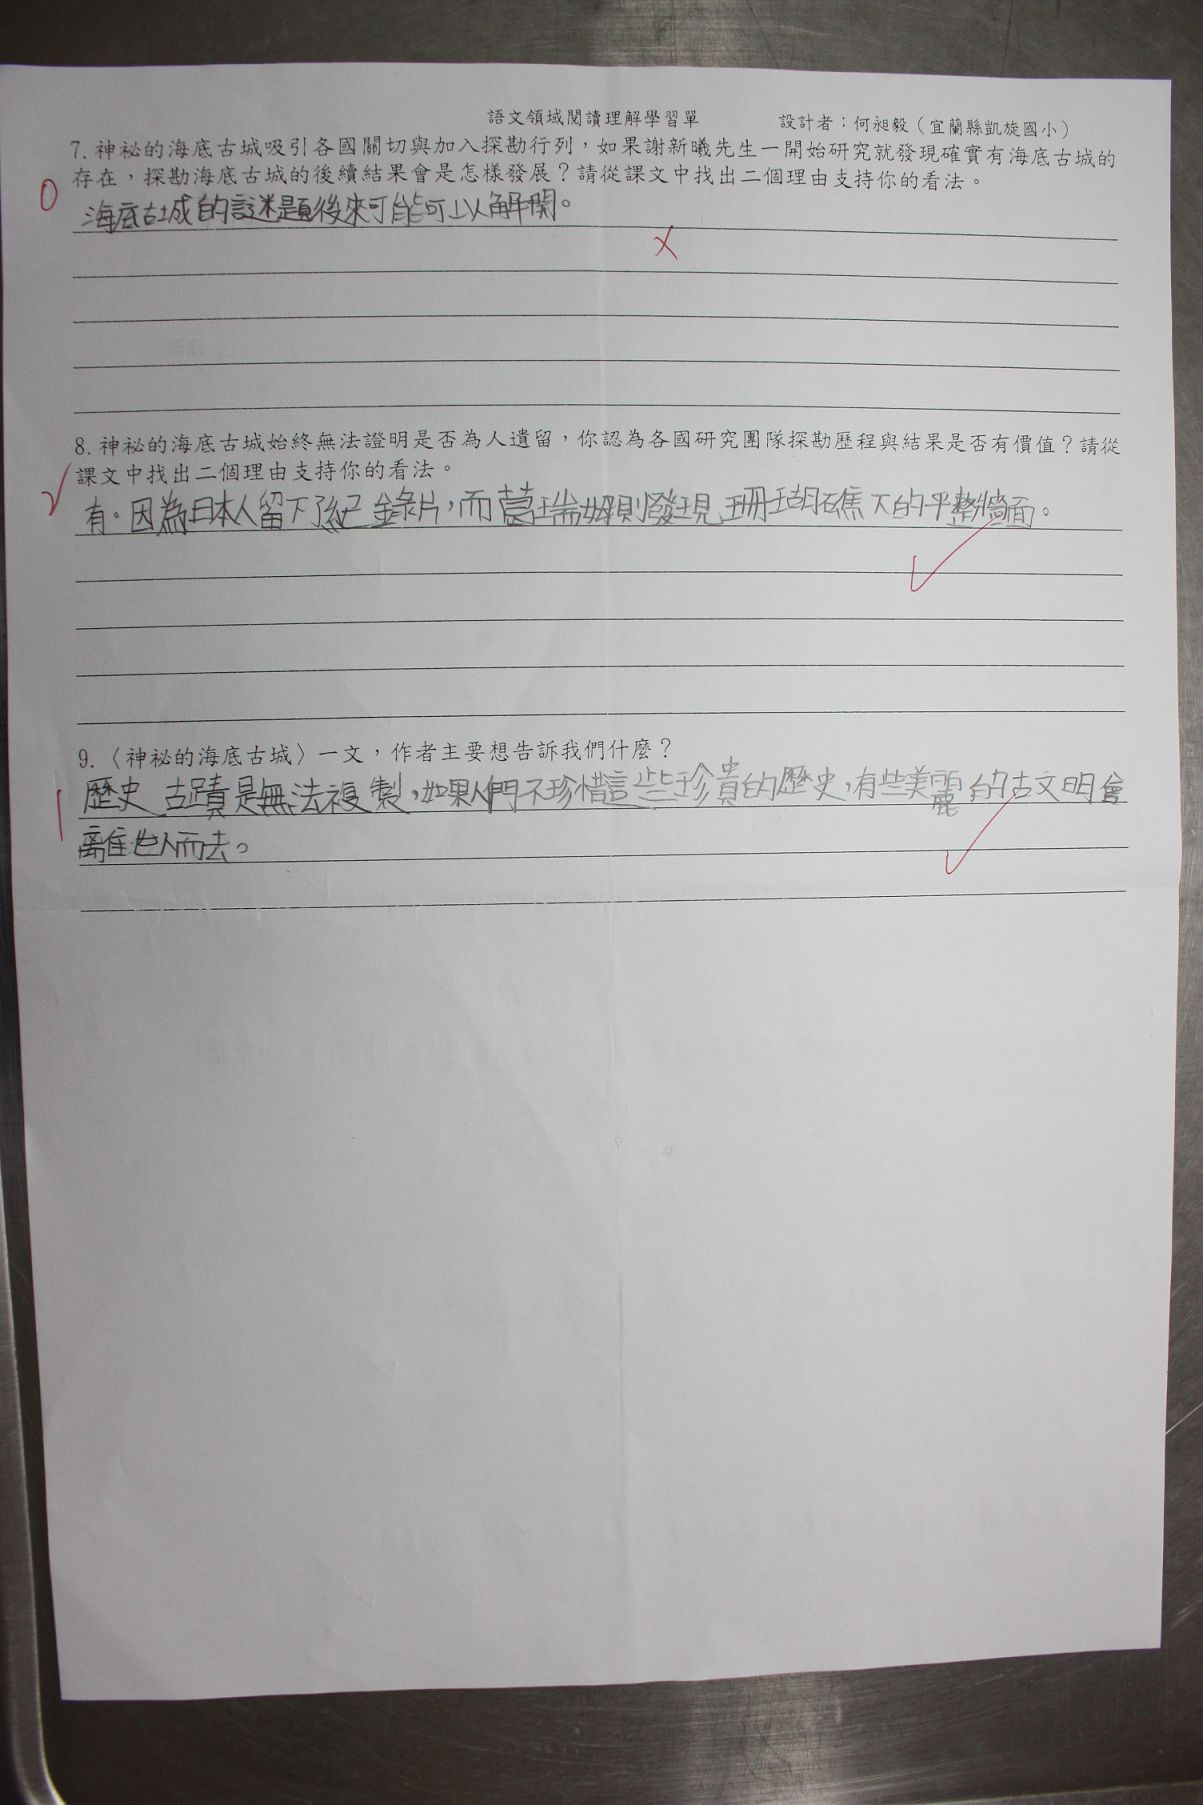 語文領域閱讀理解學習單 設計者：何昶毅（宜蘭縣凱旋國小）
7. 神祕的海底古城吸引各國關切與加入探勘行列，如果謝新曦先生一開始研究就發現確實有海底古城的
存在，探勘海底古城的後續結果會是怎樣發展？請從課文中找出二個理由支持你的看法。
0
海底古城的謎題後來可能可以解開。
8. 神祕的海底古城始終無法證明是否為人遺留，你認為各國研究團隊探勘歷程與結果是否有價值？請從
課文中找出二個理由支持你的看法。
有。因為日本人留下了紀錄片，而葛瑞姆則發現珊瑚礁下的平整牆面。
9.〈神祕的海底古城〉一文，作者主要想告訴我們什麼？
1
歷史古蹟是無法複製，如果人們不珍惜這些珍貴的歷史，有些美麗的古文明會
離世人而去。